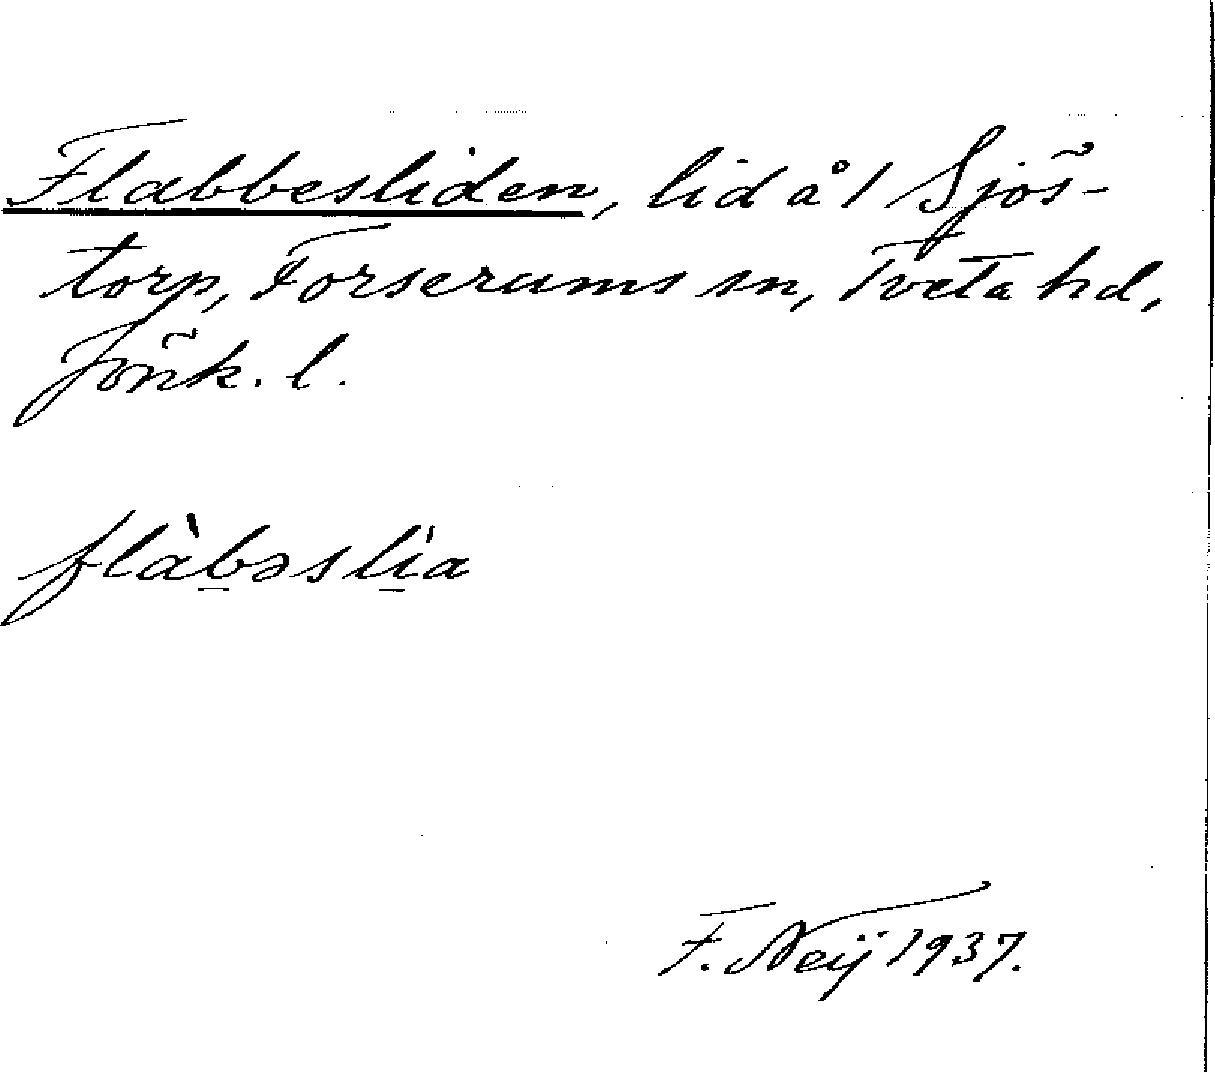 Flabbesliden, lid å 1 Sjös-
torp, Forserums sn, Tveta hd,
Jönk. l.
flàb̲əsli̲̍a
F. Neij 1937.